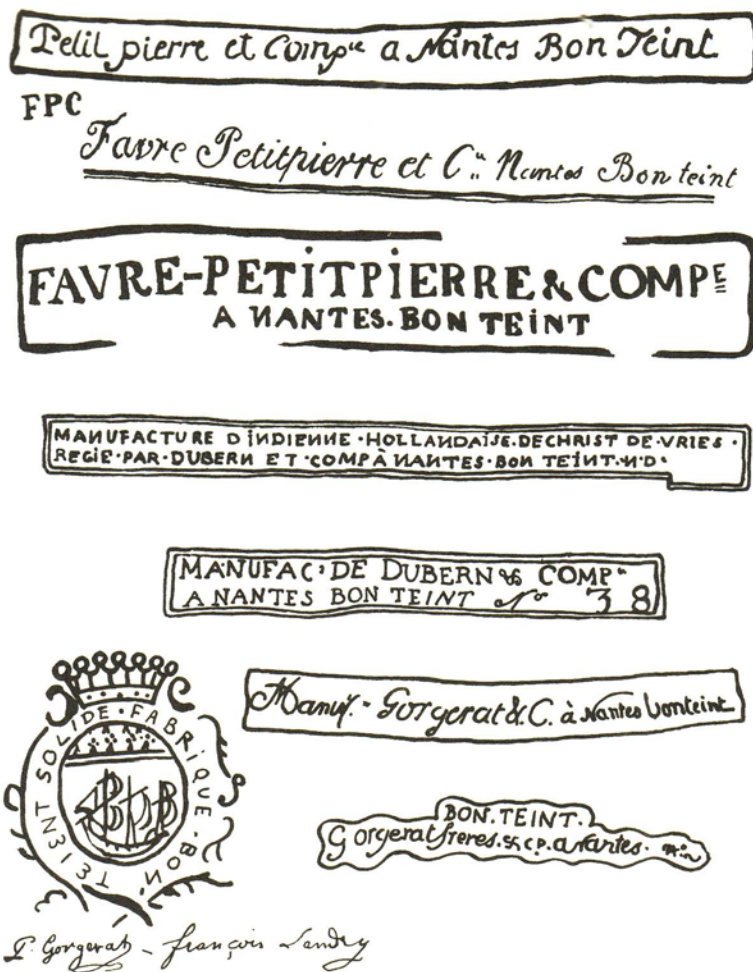 Petit pierre et Comp.ie a Nantes Bon Teint
FPC
Favre Petitpierre et C.ie Nantes Bon teint
FAVRE-PETITPIERRE & COMPE
A NANTES. BON TEINT
MANUFACTURE D INDIENNE · HOLLANDAISE. DECHRIST DE · VRIES ·
REGIE · PAR · DUBERN ET · COMP À NANTES · BON TEINT · N · D ·
MANUFAC · DE DUBERN & COMP.
A NANTES BON TEINT No 38
SOLIDE · FABRIQUE · BON · TEIENT
Manuf. - Gorgerat & C. à Nantes bonteint
BON. TEINT.
Gorgerat freres. & c p. a nantes.
P. Gorgerat - françois Landry